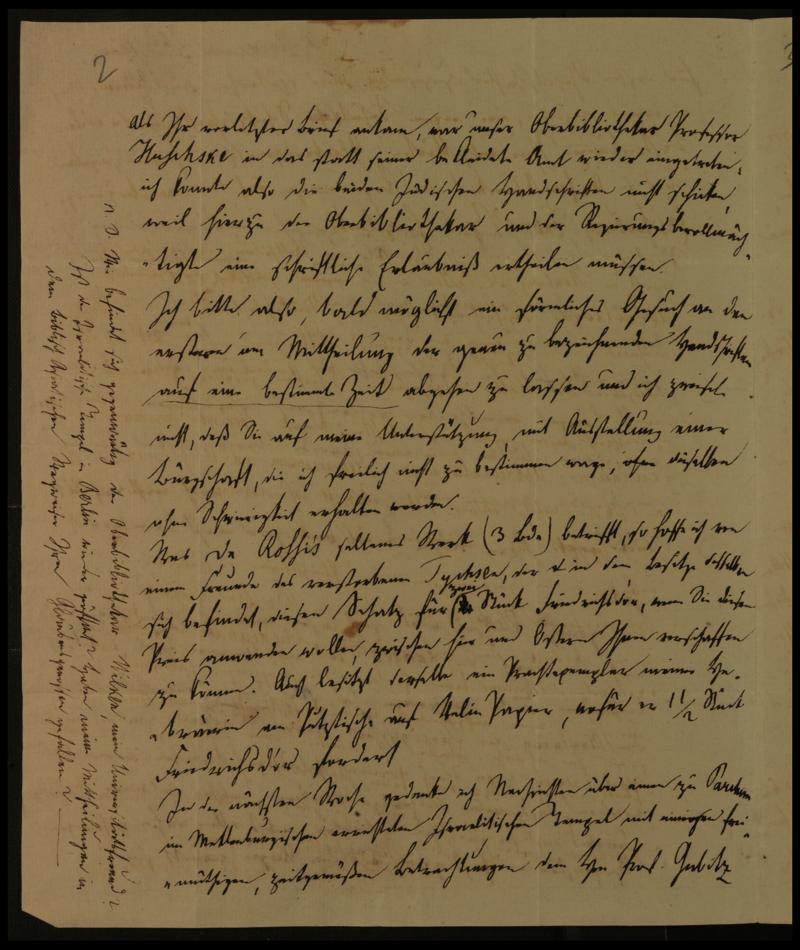 2
als Ihr vorletzter Brief ankam, war unser Oberbibliothekar Professor
Huschke in das statt seiner bekleidete Amt wieder eingetreten,
ich konnte also die beiden Jüdischen Handschriften nicht schicken,
weil hierzu der Oberbibliothekar und der Regierungsbevollmäch-
-tigte eine schriftliche Erlaubniß ertheilen müssen.
Ich bitte also, bald möglichst ein förmliches Gesuch an den
ersteren um Mittheilung der genau zu bezeichnenden Handschriften
auf eine bestimmte Zeit abgehen zu lassen und ich zweifle
nicht, daß Sie auf meine Unterstützung, mit Ausstellung einer
Bürgschaft, die ich freilich nicht zu bestimmen wage, ohne dieselben
ohne Schwierigkeit erhalten werden.
Was De Rossi's seltenes Werk (3 Bde) betrifft, so hoffe ich von
einem Freunde des verstorbenen Tychsen, der in dem Besitze desselben
sich befindet, diesen Schatz für Stück Friedrichsdor, wenn Sie diesen
Preis anwenden wollen, zwischen hier und Ostern Ihnen verschaffen
zu können. Auch besitzt derselbe ein Prachtexemplar meiner He-
-bräerin am Putztische auf Velin Papier, wofür er 1 1/2 Stück
Friedrichsdor fordert
In der nächsten Woche gedenke ich Nachrichten über einen zu Parchim
im Meklenburgischen errichteten Israelitischen Tempel mit einigen frei-
-müthigen, zeitgemäßen Betrachtungen dem Hn Prof. Gubitz
N. S. Wo befindet sich gegenwärtig der Oberbibliothekar Wilken, mein Universitätsfreund?
Ist der Israelitische Tempel in Berlin wieder geöffnet? Haben meine Mittheilungen in
dem biblisch Ihren Glaubensgenossen gefallen?